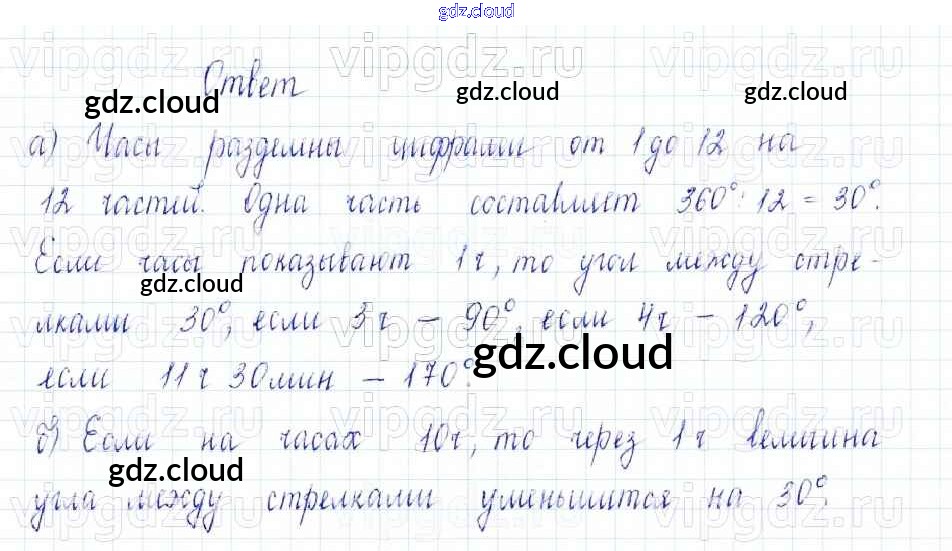 gdz.cloud
Ответ
gdz.cloud gdz.cloud gdz.cloud
а) Часы разделены цифрами от 1 до 12 на
12 частей. Одна часть составляет 360° : 12 = 30°.
Если часы показывают 1 ч, то угол между стре-
gdz.cloud
лками 30°, если 3 ч – 90°, если 4 ч – 120°,
gdz.cloud
если 11 ч 30 мин – 170°.
б) Если на часах 10 ч, то через 1 ч величина
gdz.cloud
угла между стрелками уменьшится на 30°.